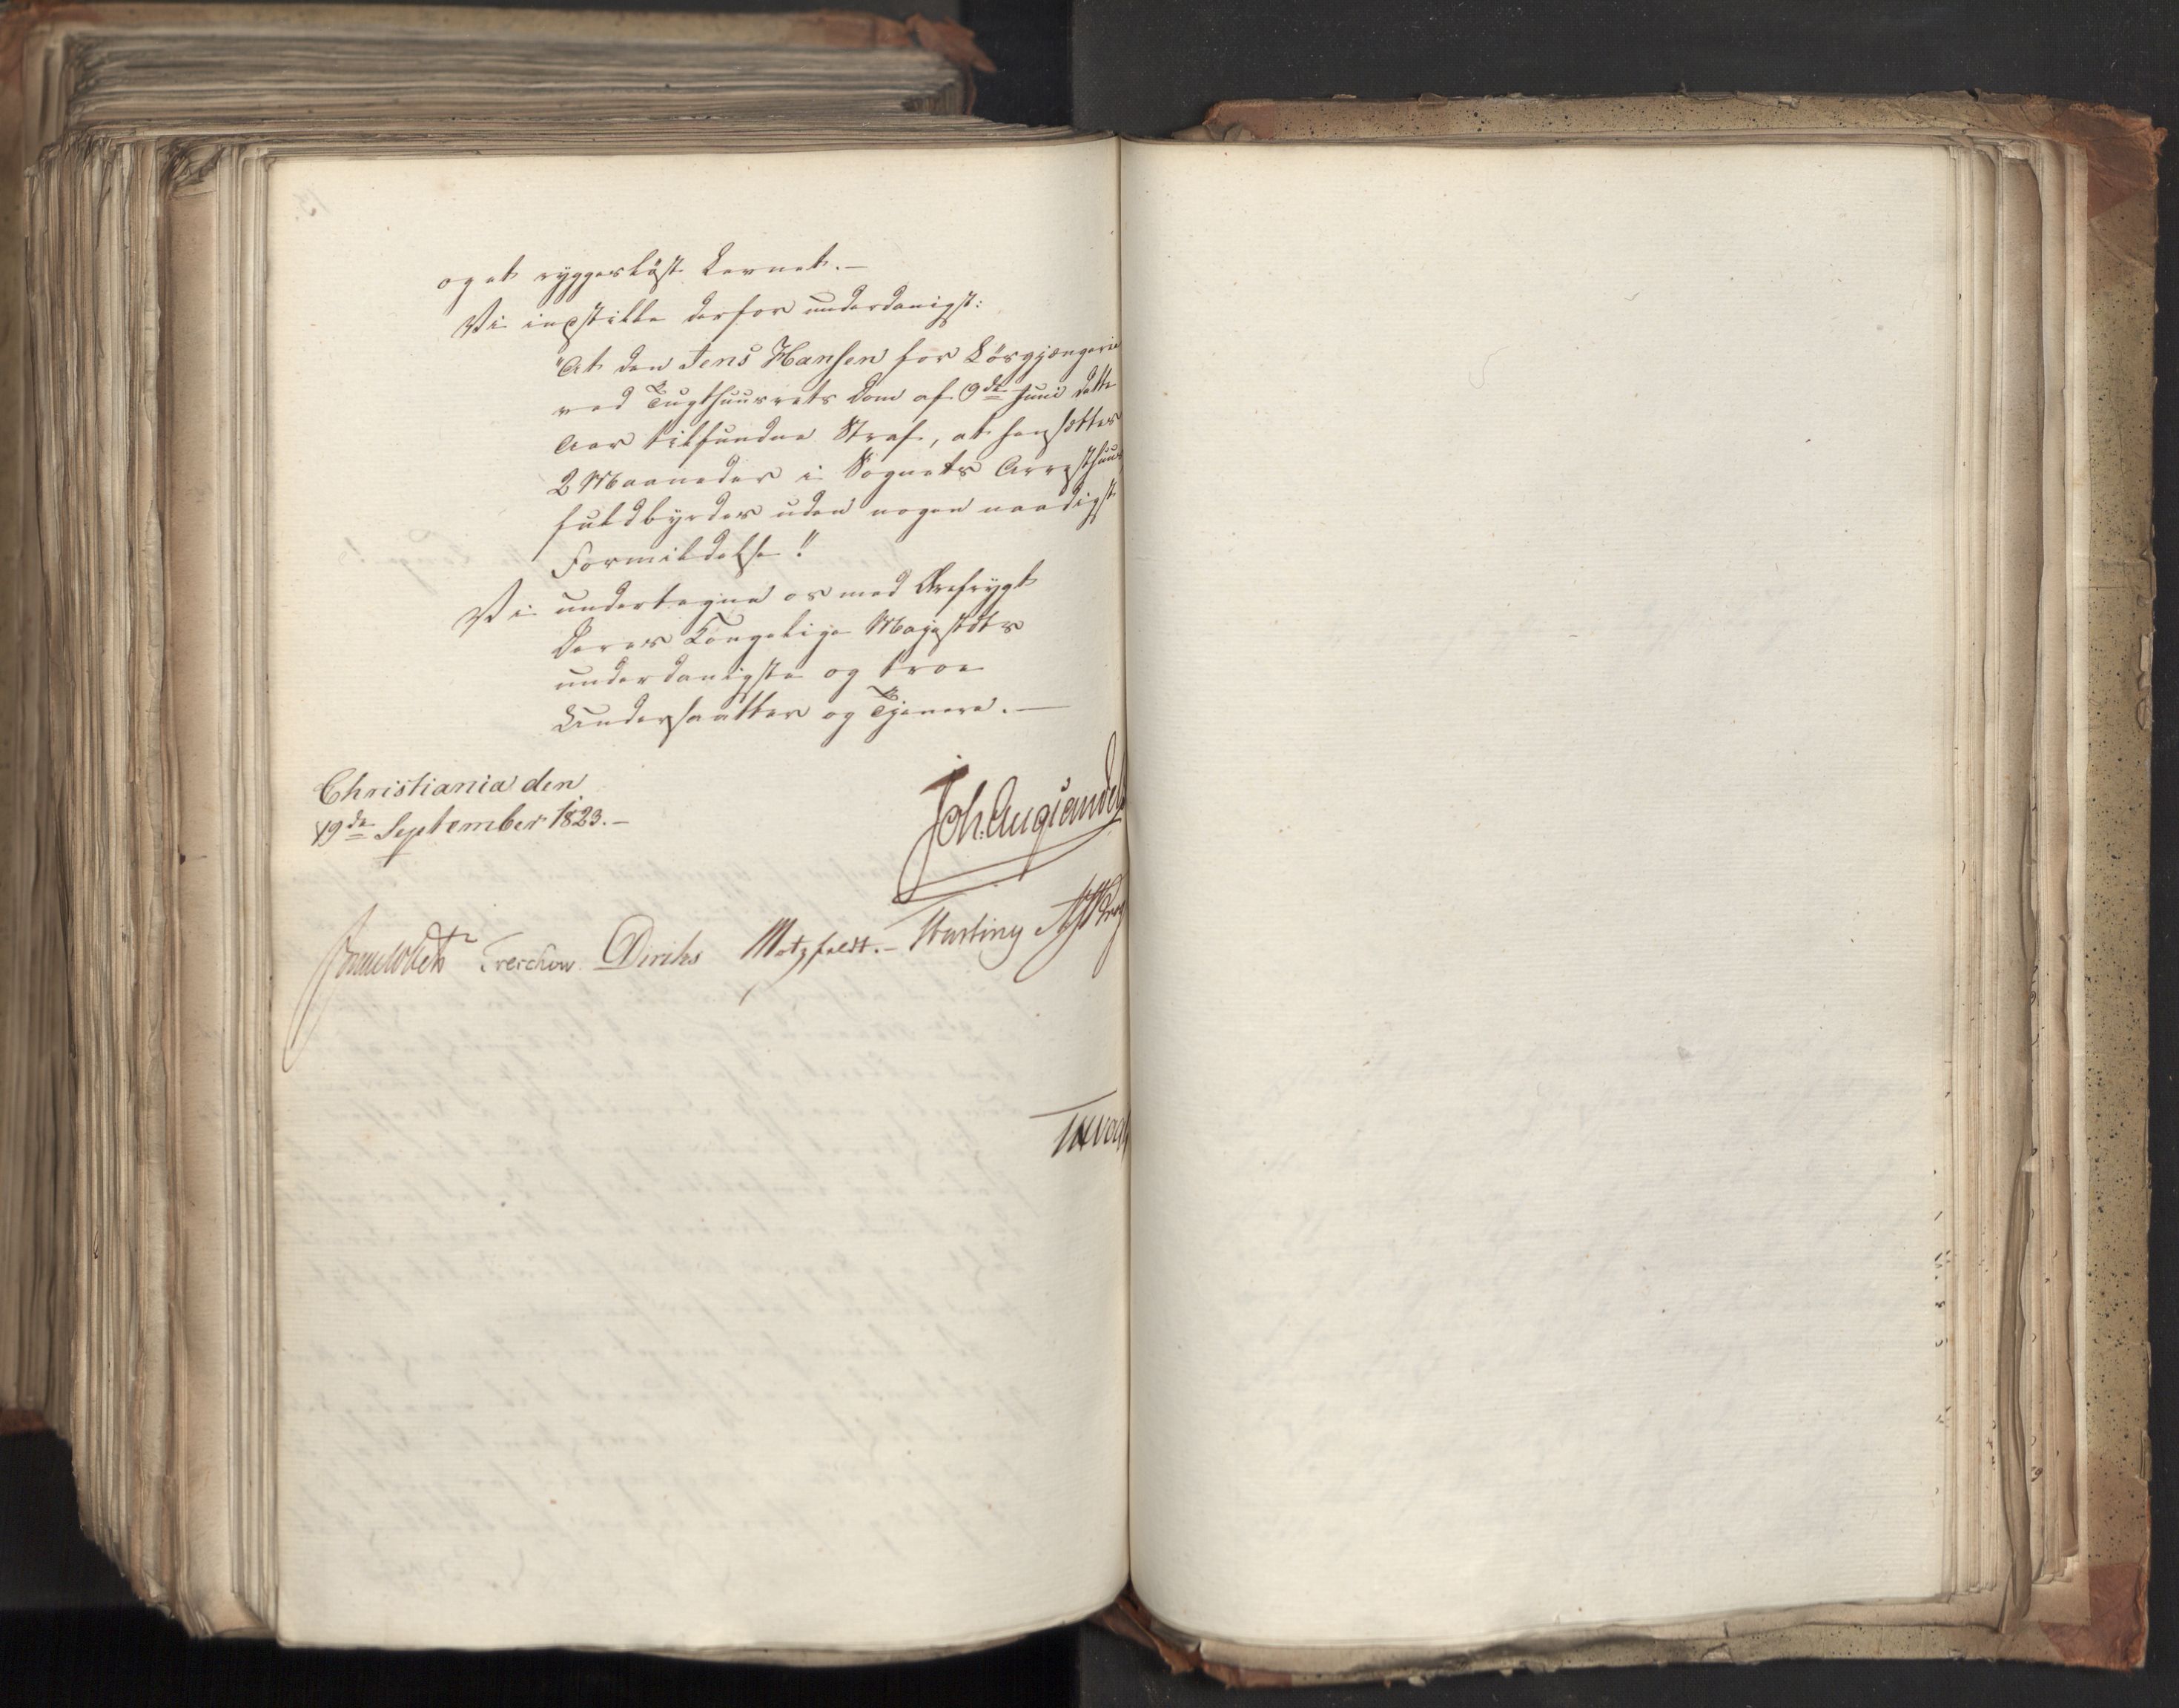 og et ryggesløst Levnet.—
Vi indstille derfor underdanigst:
"At den Jens Hansen for Løsgjængerie
ved Tugthuusrets Dom af 9de Juni dette
Aar tilfundne Straf, at hensættes
2 Maaneder i Sognets Arresthuus
fuldbyrdes uden nogen naadigst
Formildelse"
Vi undertegne os med Ærefrygt
Deres Kongelige Majestæts
underdanigste og troe
Undersaatter og Tjenere.—
Christiania den
19de September 1823.—
Joh. Aug. Sandels
Sommerhielm Treschow Diriks Motzfeldt.— Hastinq